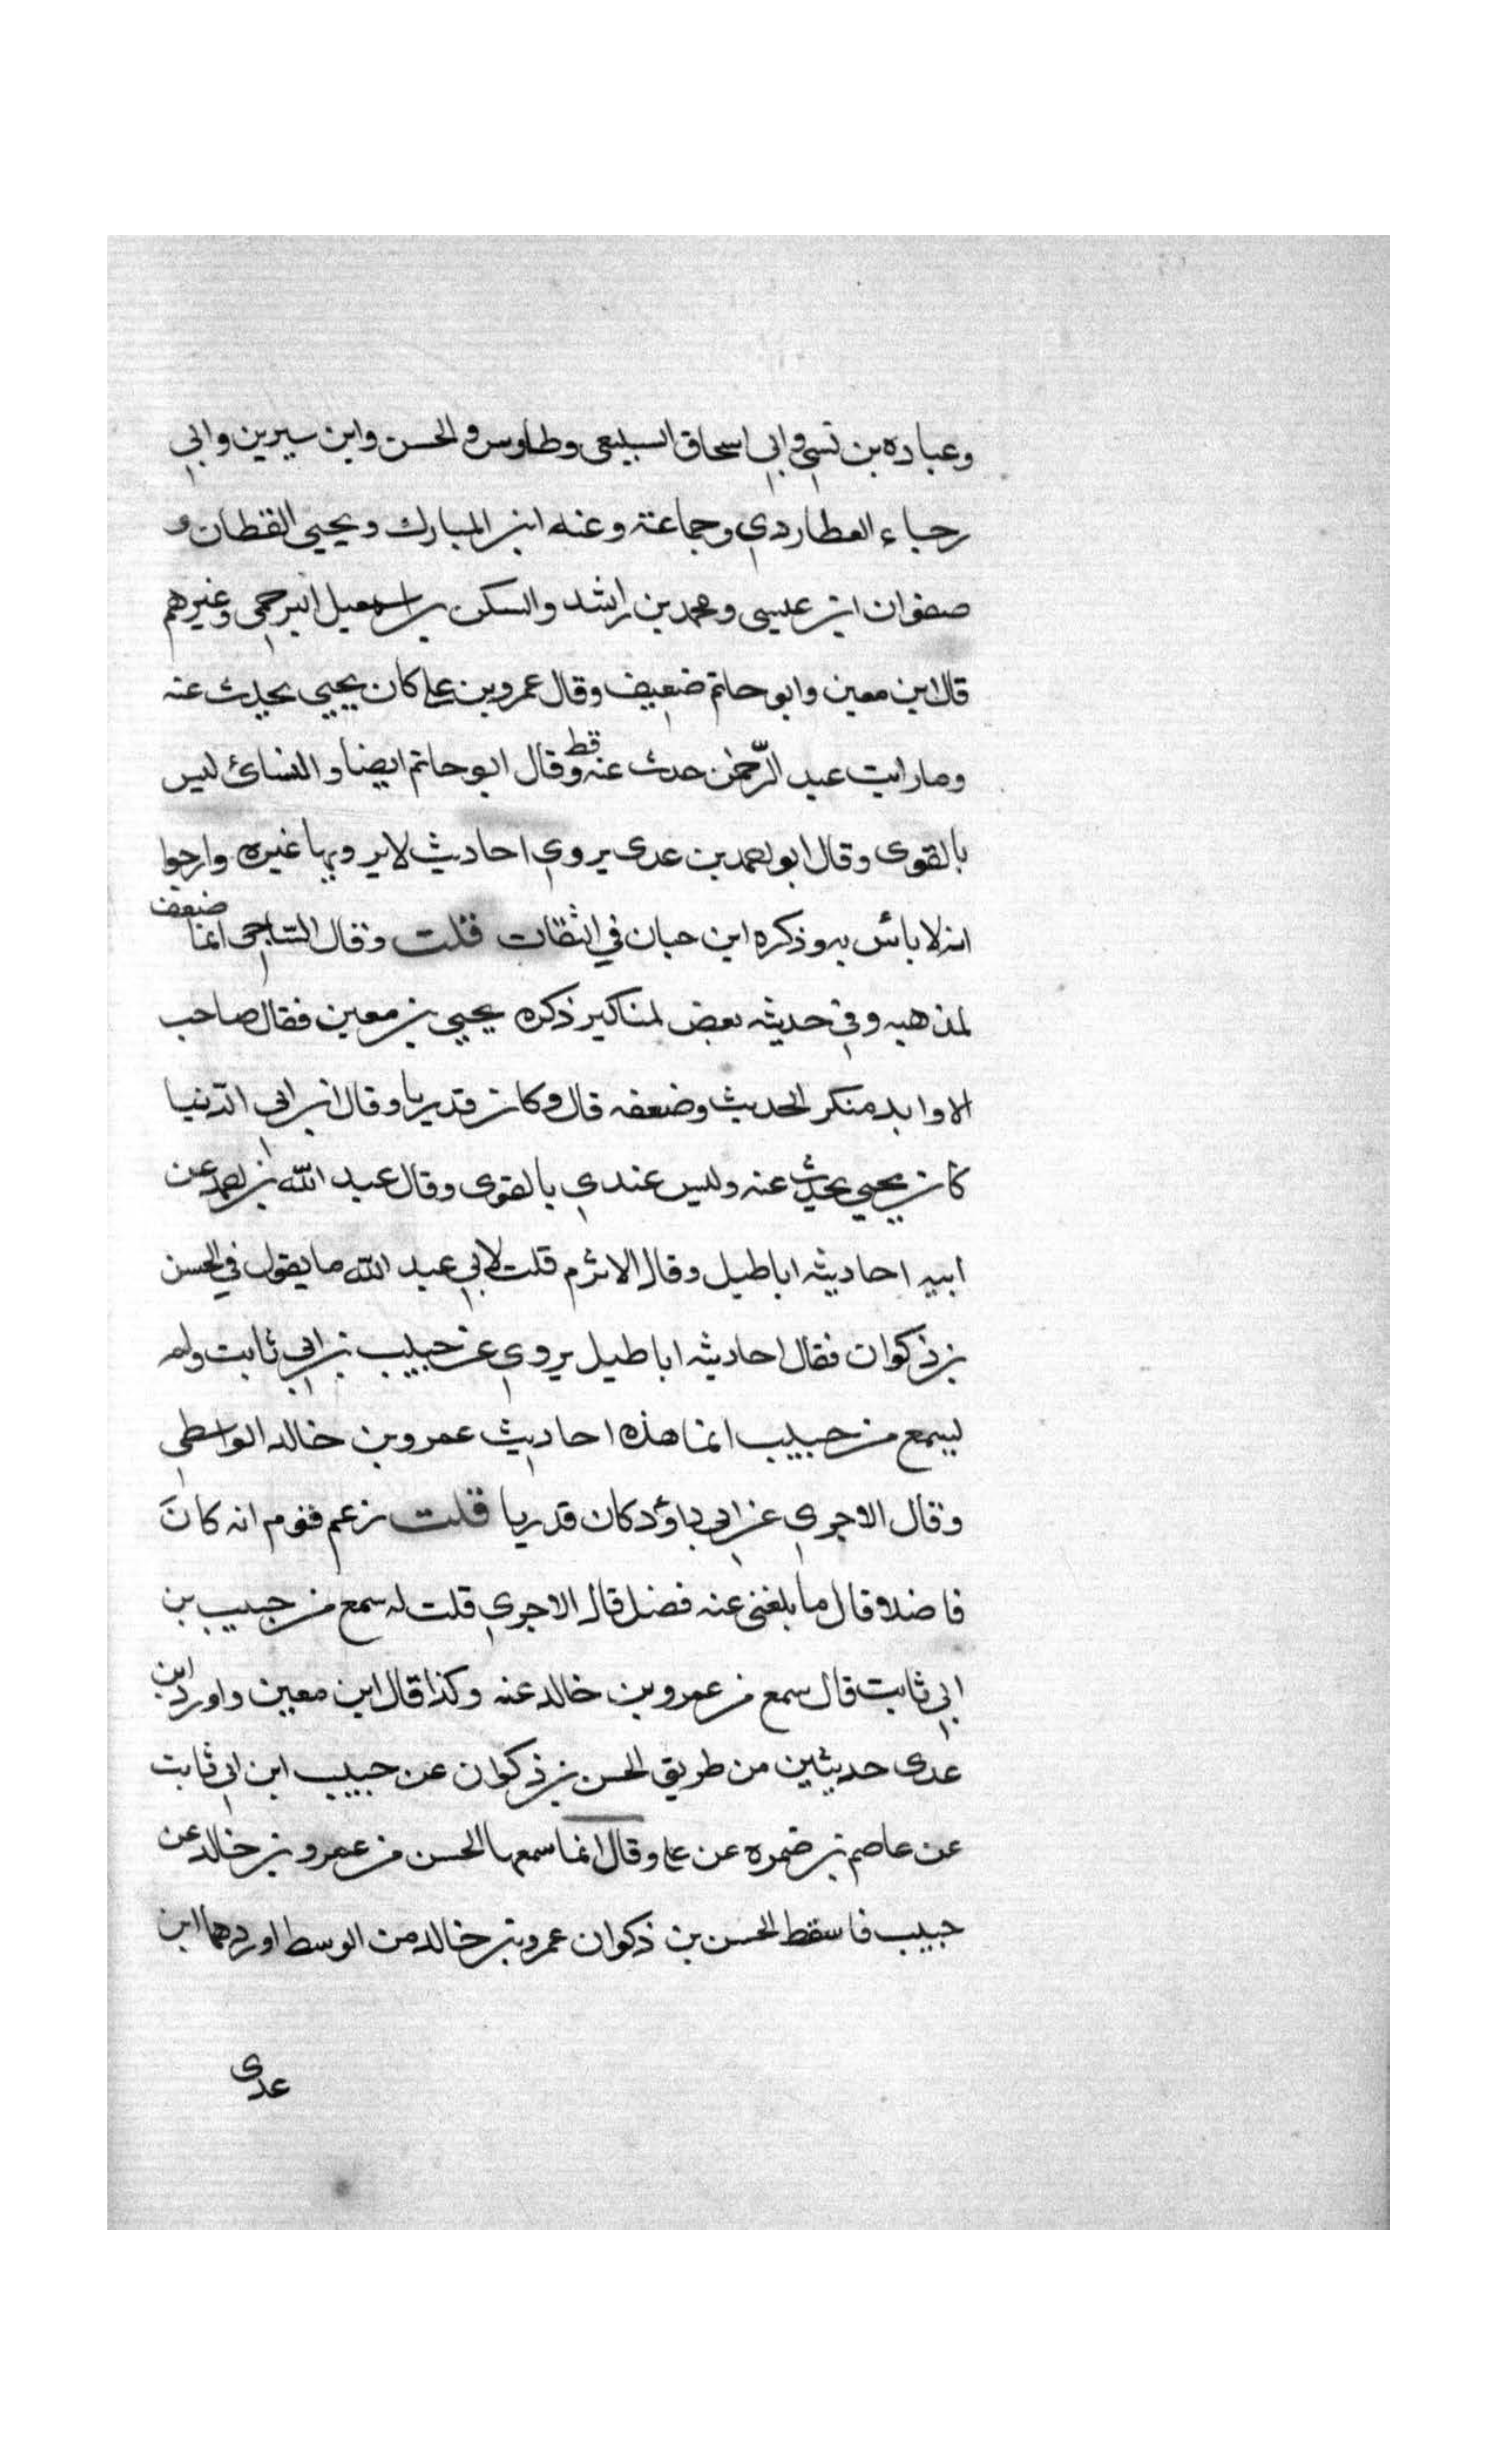 وعباده بن نسي وابي اسحاق السبيعي وطاوس والحسن وابن سيرين وابي
رجاء العطاردي وجماعة وعنه ابن المبارك ويحيى القطان و
صفوان ابن عيسى ومحمد بن راشد والسكن بن اسمعيل البرجمي وغيرهم
قال ابن معين وابو حاتم ضعيف وقال عمرو بن علي كان يحيى يحدث عنه
وما رايت عبد الرحمن حدث عنه قط وقال ابو حاتم ايضا والنسائ ليس
بالقوى وقال ابو احمد بن عدى يروي احاديث لا يرويها غيره وارجوا
انه لا بائس به وذكره ابن حبان في الثقات قلت وقال الساجي انما ضعف
لمذهبه وفي حديثه بعض لمناكير ذكره يحيى بن معين فقال صاحب
الاوابد منكر الحديث وضعفه قال وكان قدريا وقال ابن ابي الدنيا
كان يحيى يحدث عنه وليس عندي بالقوى وقال عبد الله بن احمد عن
ابيه احاديثه اباطيل وقال الاثرم قلت لابي عبد الله ما يقول في الحسن
بن ذكوان فقال احاديثه اباطيل يروي عن حبيب بن ابي ثابت ولم
ليسمع من حبيب انما هذه احاديث عمرو بن خالد الواسطي
وقال الاجري عن ابي داؤد كان قدريا قلت زعم قوم انه كان
فاضلا وقال ما بلغني عنه فضل قال الاجري قلت له سمع من حبيب بن
ابي ثابت قال سمع من عمرو بن خالد عنه وكذا قال ابن معين واورد ابن
عدى حديثين من طريق الحسن بن ذكوان عن حبيب ابن ابي ثابت
عن عاصم بن ضمره عن علي وقال انما سمعها الحسن من عمرو بن خالد عن
حبيب فاسقط الحسن بن ذكوان عمرو بن خالد من الوسط اوردهما ابن
عدى